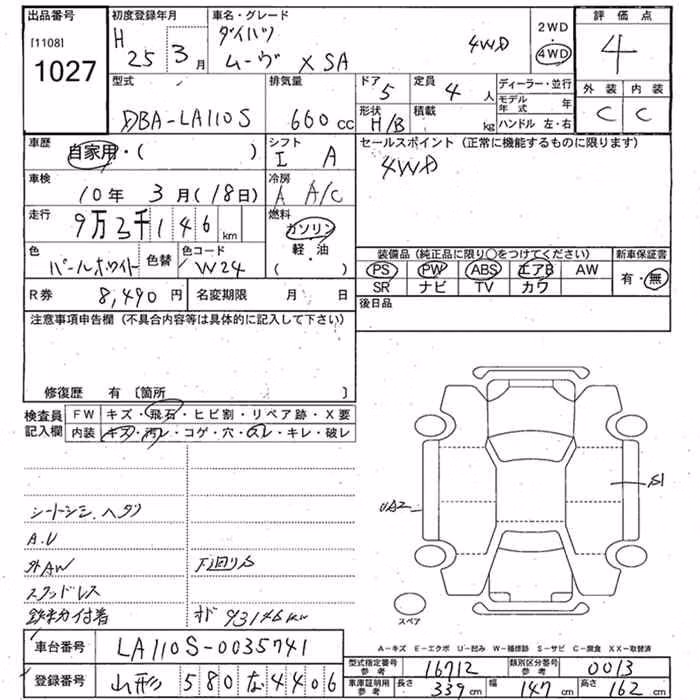 出品番号 初度登録年月 車名・グレード 2WD 評価点
[1108] H ダイハツ ・
1027 25 3月 ムーヴ X SA 4WD 4WD 4
型式 排気量 ドア 定員 ディーラー・並行 外装 内装
DBA-LA110S 660cc 5 4人 モデル年式 年 C C
形状 積載 ハンドル 左・右
H/B kg
車歴 自家用・( ) シフト セールスポイント (正常に機能するものに限ります)
I A 4WD
車検 冷房
10年 3月(18日) A A/C
走行 燃料
9万3千146km ガソリン
軽・油
( )
色 色替 色コード 装備品 (純正品に限り○をつけてください) 新車保証書
パールホワイト W24 PS PW ABS エアB AW 有・無
SR ナビ TV カワ
R券 8,490円 名変期限 月 日 後日品
注意事項申告欄 (不具合内容等は具体的に記入して下さい)
修復歴 有 〔箇所 〕
検査員 FW キズ・飛石・ヒビ割・リペア跡・X要
記入欄 内装 キズ・汚レ・コゲ・穴・スレ・キレ・破レ
S1
UA2
シートシミ、ヘタリ
A.U
外AW 下回りS
スタッドレス
鉄チン付着 オド 93146km
スペア
A-キズ E-エクボ U-凹み W-補修跡 S-サビ C-腐食 XX-取替済
車台番号 LA110S-0035741
型式指定番号 参考 16712 類別区分番号 参考 0013
登録番号 山形 580 な 4406
車庫証明用 参考 長さ 339cm 幅 147cm 高さ 162cm